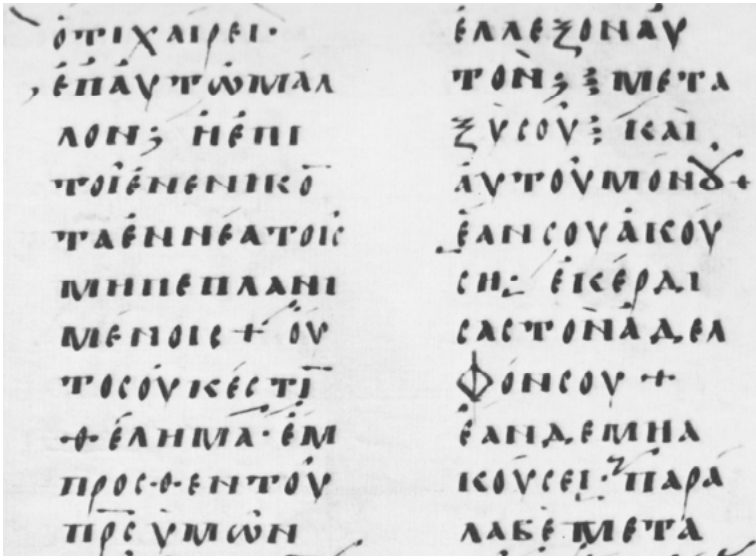 ὁτιχαίρει·
ἐπαυτῶμάλ
λον; ἠἐπι
τοἰἐνενικο̅
ταἐννέατοις
μηπεπλανι
μένοις + ὁυ
τοσοὐκέστι̅
θέλημα· ἐμ
προσθεντοῦ
πρ̅ς ὑμῶν
ἐλλεξοναυ
τὸν; ξ μετα
ξὺσοῦ ξ καὶ
ἀυτοῦμόνȣ +
ἐανσουἀκου
ση; ἐκέρδι
σαςτονἀδελ
φόνσου +
ἐανδεμηἀ
κούσει· παρά
λαβεμετα